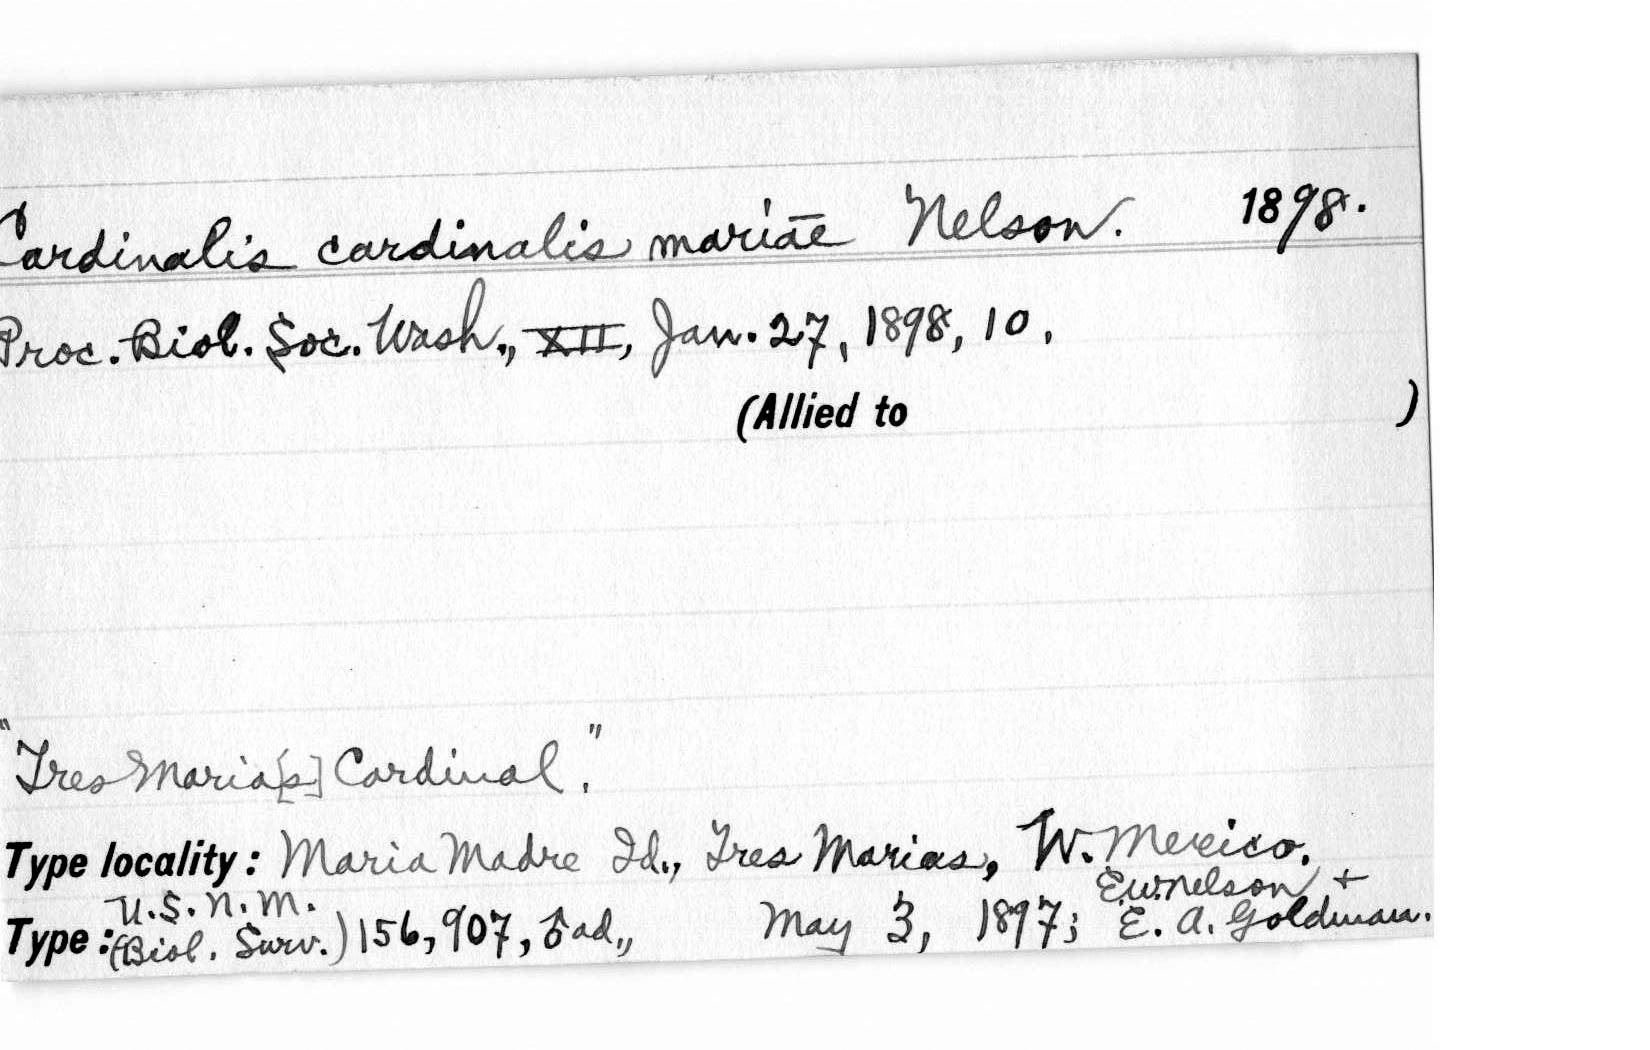 Cardinalis cardinalis mariae Nelson. 1898.
Proc. Biol. Soc. Wash., XII, Jan. 27, 1898, 10.
(Allied to )
"Tres Maria[s] Cardinal."
Type locality: Maria Madre Id., Tres Marias, W. Mexico.
U.S.N.M. E.W. Nelson +
Type: (Biol. Surv.) 156,907, ♂ ad., May 3, 1897; E. A. Goldman.